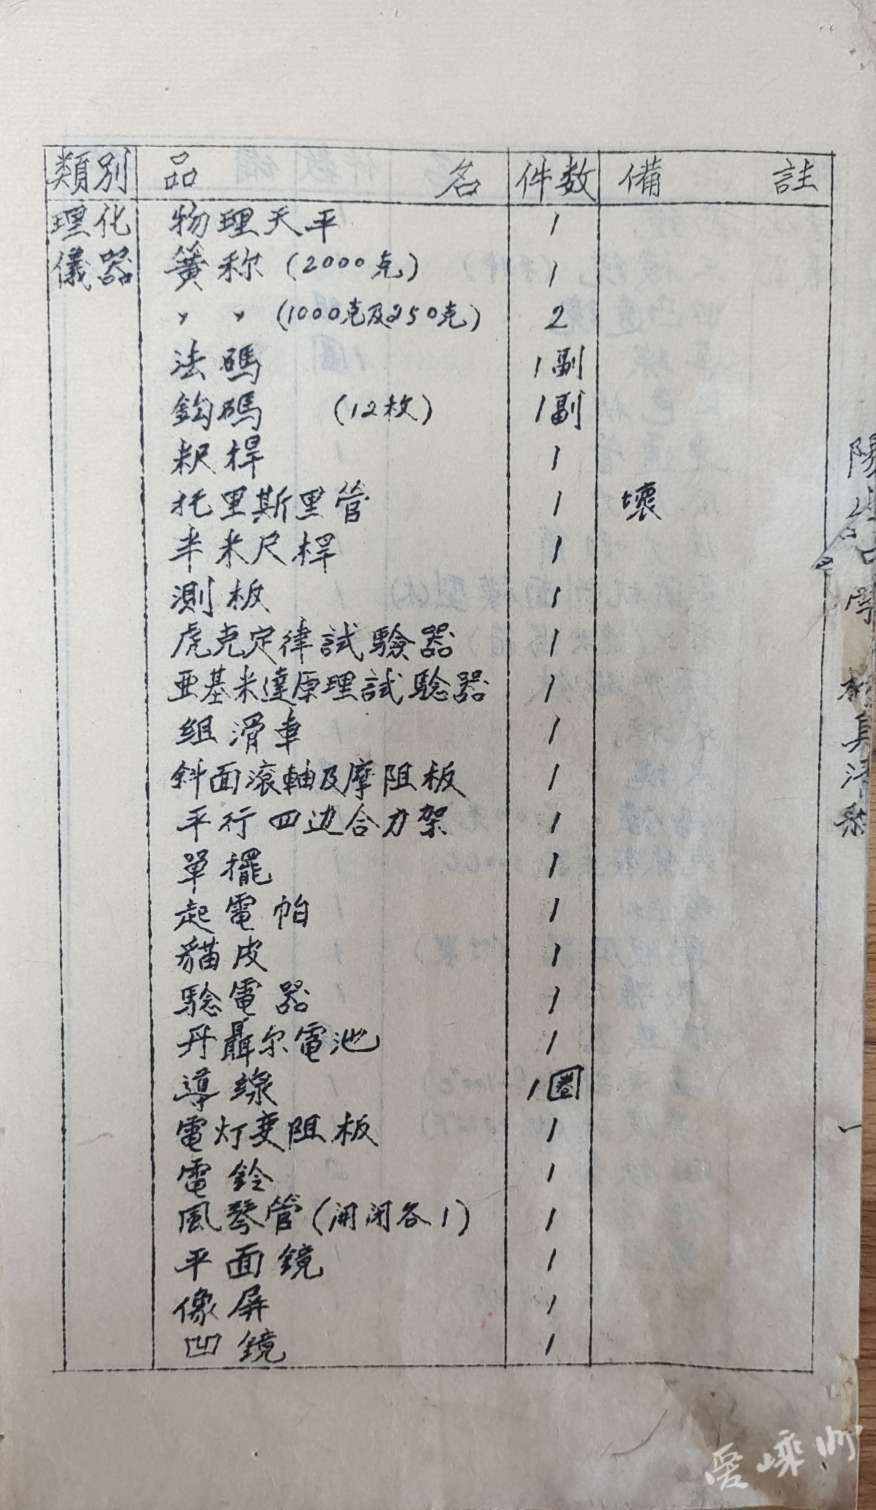 類別 品名 件数 備註
理化 物理天平 1
儀器 簧称 (2000克) 1
〃 〃 (1000克及250克) 2
法碼 1副
鈎碼 (12枚) 1副
积桿 1
托里斯里管 1 壞
半米尺桿 1
測板 1
虎克定律試驗器 1
亜基米達原理試驗器 1
组滑車 1
斜面滾軸及摩阻板 1
平行四边合力架 1
單擺 1
起電帕 1
貓皮 1
驗電器 1
丹聶尔電池 1
導線 1圈
電灯変阻板 1
電鈴 1
風琴管(開闭各1) 1
平面鏡 1
像屏 1
凹鏡 1
一
愛嵊州